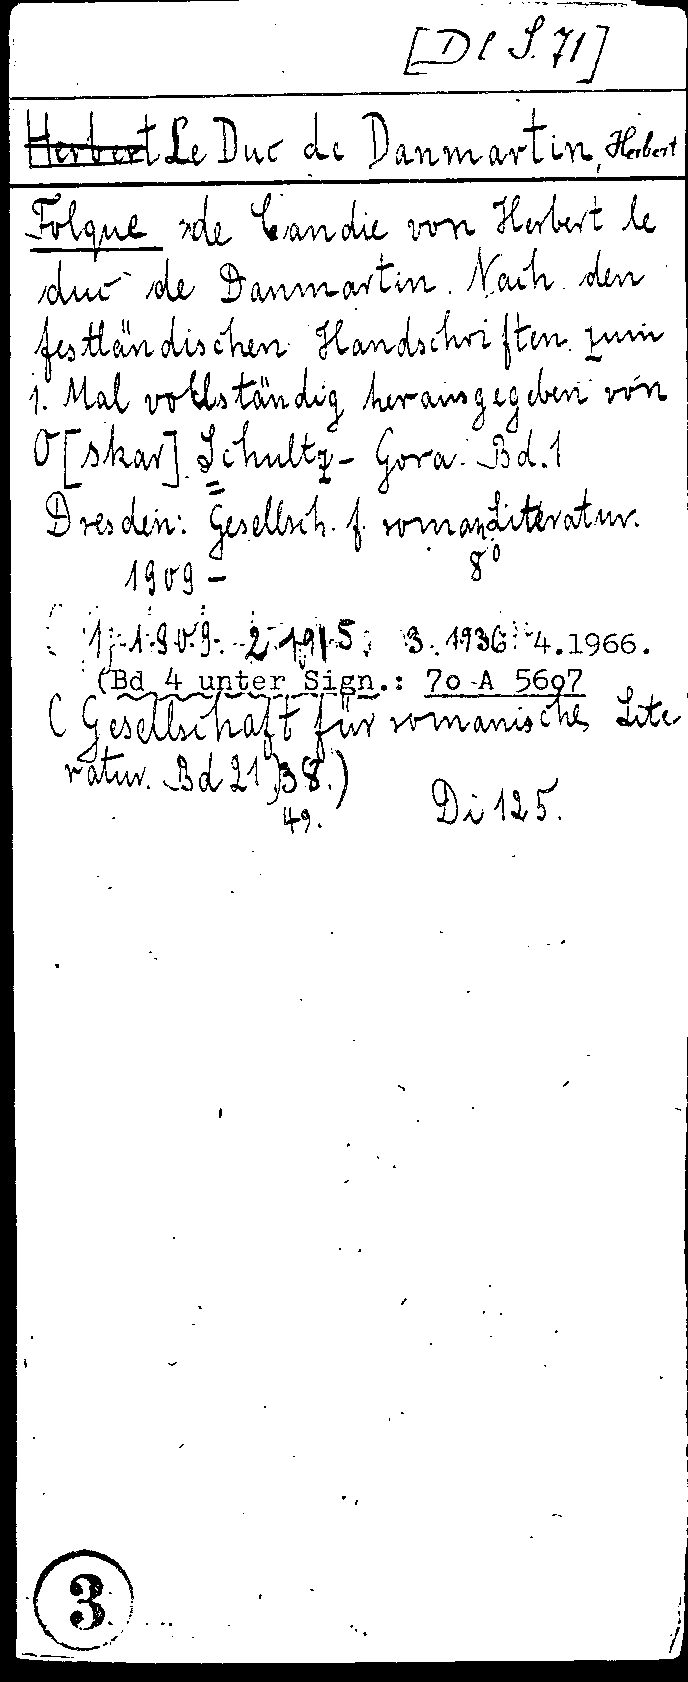 [Dl S. 71]
Herbert Le Duc de Danmartin, Herbert
Folque de Candie von Herbert le
duc de Danmartin. Nach den
festländischen Handschriften zum
1. Mal vollständig herausgegeben von
O[skar] Schultz-Gora. Bd. 1
Dresden: Gesellsch. f. roman. Literatur.
1909 – 8°
1. 1909. 2. 1915. 3. 1936. 4.1966.
(Bd 4 unter Sign.: 7o A 56o7
(Gesellschaft für romanische Lite
ratur. Bd 21, 38.)
49. Di 125.
3